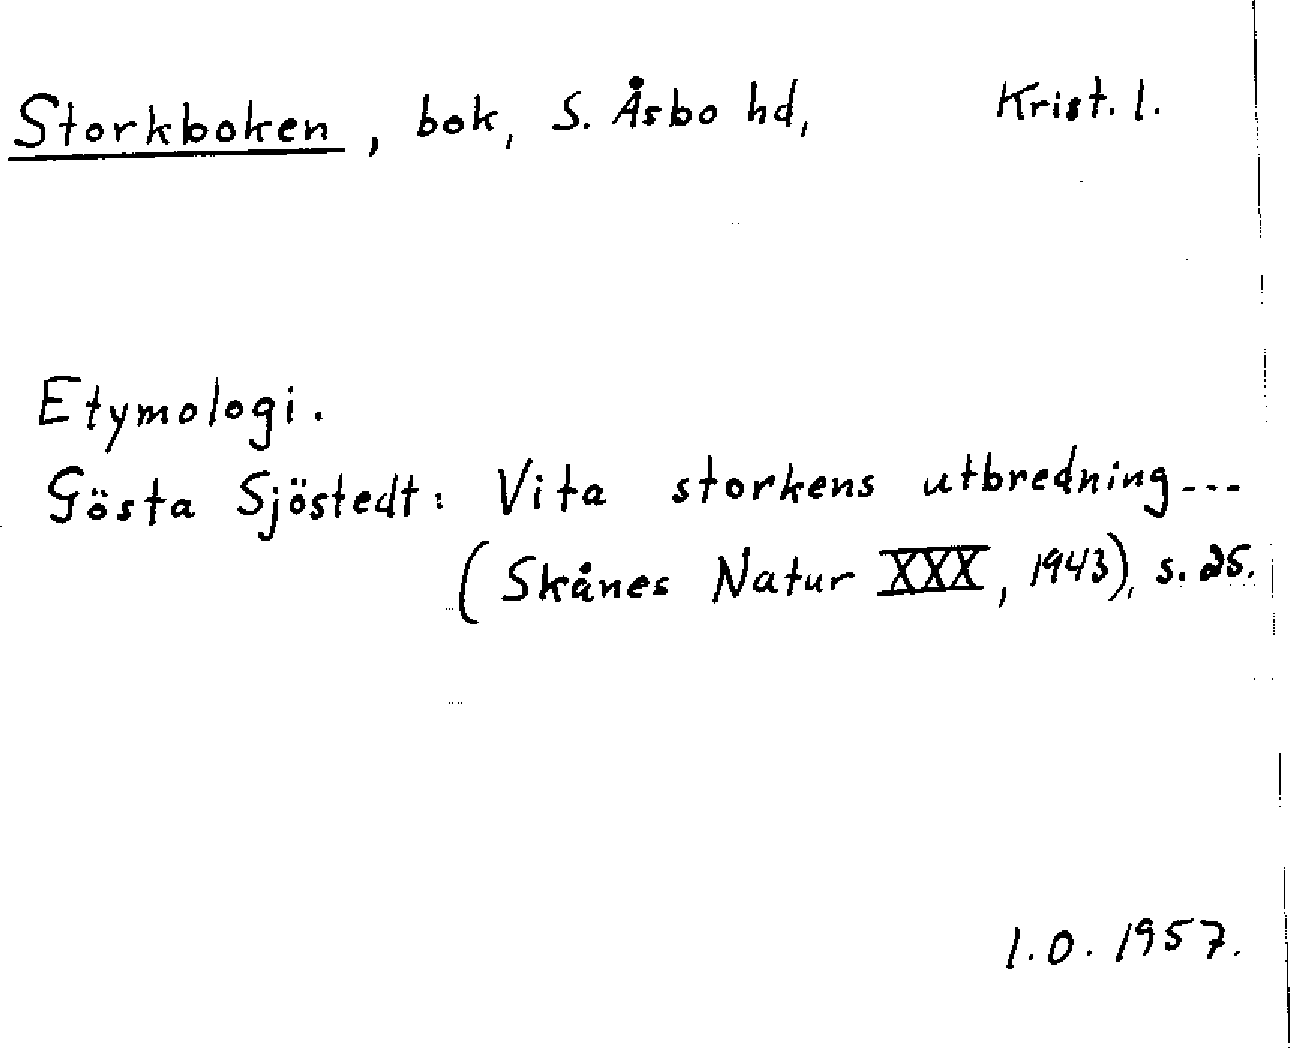 Storkboken, bok, S. Åsbo hd, Krist. l.
Etymologi.
Gösta Sjöstedt: Vita storkens utbredning---
(Skånes Natur XXX, 1943), s. 25.
I.O. 1957.